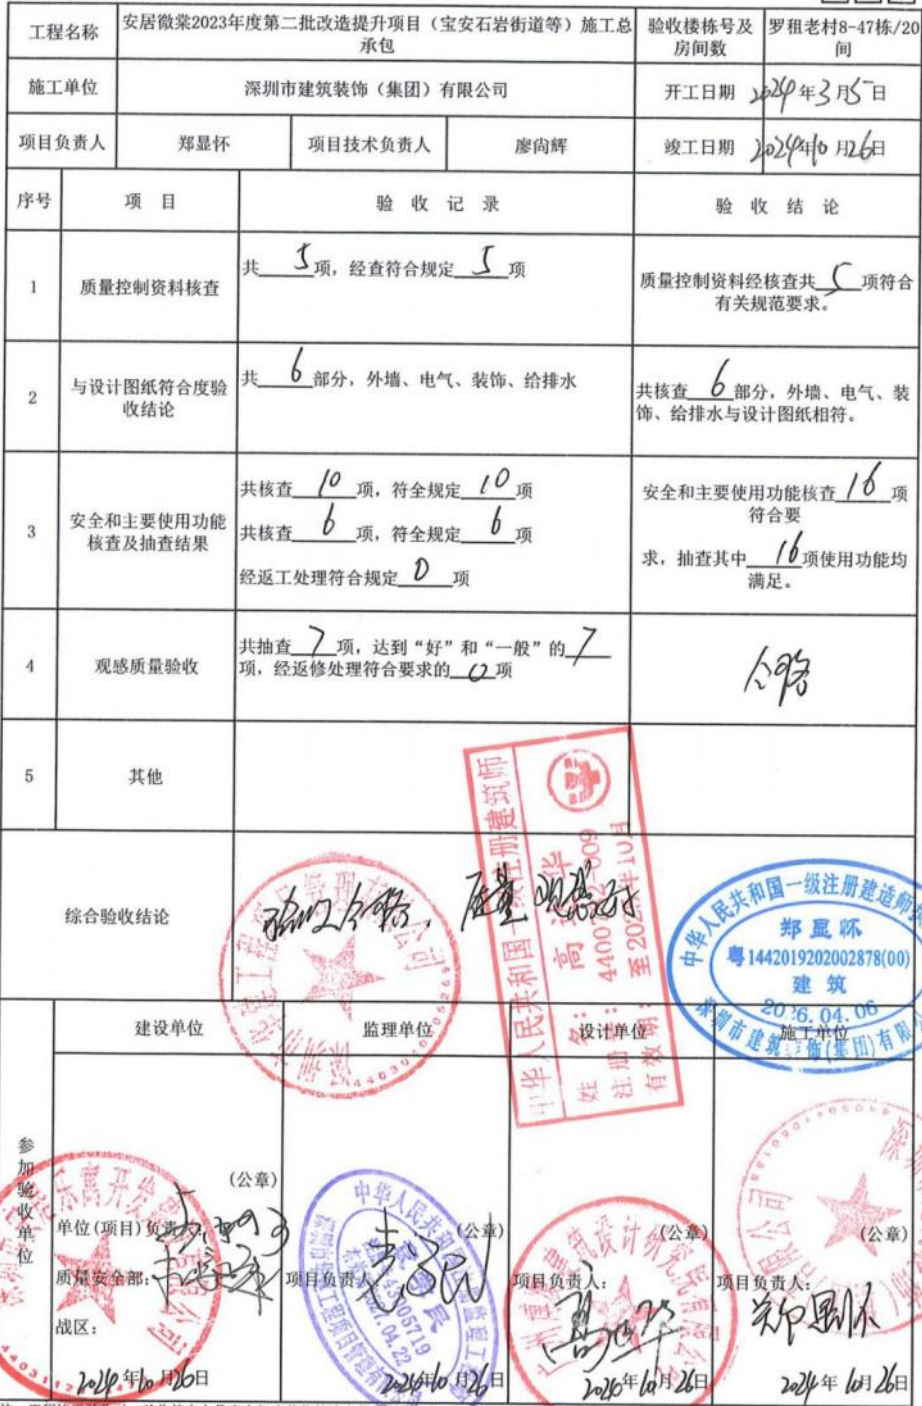 工程名称
安居微棠2023年度第二批改造提升项目（宝安石岩街道等）施工总
承包
验收楼栋号及
房间数
罗租老村8-47栋/20
间
施工单位
深圳市建筑装饰（集团）有限公司
开工日期
2024年3月5日
项目负责人
郑显怀
项目技术负责人
廖尚辉
竣工日期
2024年10月26日
序号
项 目
验 收 记 录
验 收 结 论
1
质量控制资料核查
共 5 项，经查符合规定 5 项
质量控制资料经核查共 5 项符合
有关规范要求。
2
与设计图纸符合度验
收结论
共 6 部分，外墙、电气、装饰、给排水
共核查 6 部分，外墙、电气、装
饰、给排水与设计图纸相符。
3
安全和主要使用功能
核查及抽查结果
共核查 10 项，符全规定 10 项
共核查 6 项，符全规定 6 项
经返工处理符合规定 0 项
安全和主要使用功能核查 16 项
符合要
求，抽查其中 16 项使用功能均
满足。
4
观感质量验收
共抽查 7 项，达到“好”和“一般”的 7
项，经返修处理符合要求的 0 项
合格
5
其他
综合验收结论
验收合格，质量观感好
中华人民共和国一级注册建筑师
姓 名：
注册号：
有效期：
中华人民共和国一级注册建造师
郑显怀
粤1442019202002878(00)
建筑
2026.04.06
深圳市建筑装饰(集团)有限
参加验收单位
建设单位
监理单位
设计单位
施工单位
(公章)
(公章)
(公章)
(公章)
单位(项目)负责人：
质量安全部：
战区：
2024年10月26日
项目负责人：
2024年10月26日
项目负责人：
高
2024年10月26日
项目负责人：
郑显怀
2024年10月26日